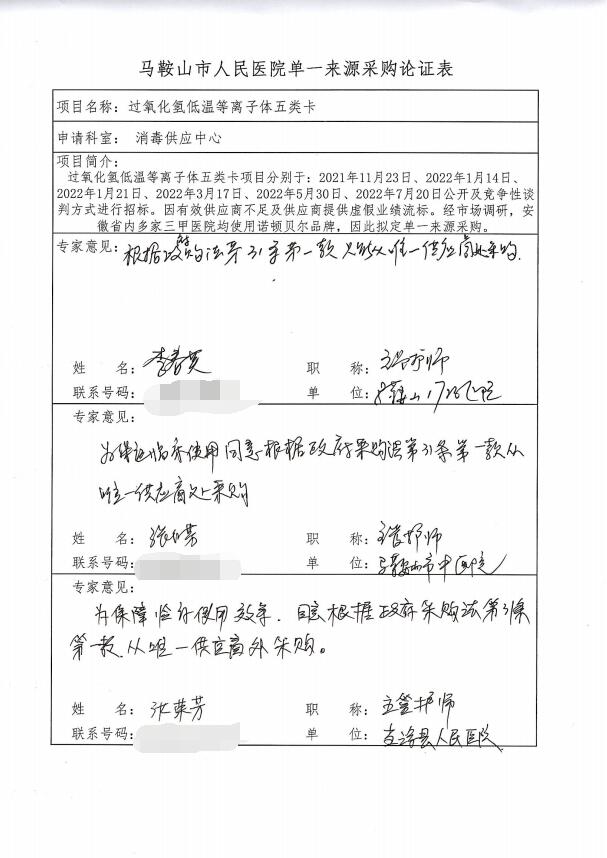 马鞍山市人民医院单一来源采购论证表
项目名称：过氧化氢低温等离子体五类卡
申请科室： 消毒供应中心
项目简介：
过氧化氢低温等离子体五类卡项目分别于：2021年11月23日、2022年1月14日、
2022年1月21日、2022年3月17日、2022年5月30日、2022年7月20日公开及竞争性谈
判方式进行招标。因有效供应商不足及供应商提供虚假业绩流标。经市场调研，安
徽省内多家三甲医院均使用诺顿贝尔品牌，因此拟定单一来源采购。
专家意见：根据政府采购法第31条第一款 只能从唯一供应商处采购.
姓 名： 职 称：主管护师
联系号码： 单 位：
专家意见：
为保证临床使用同意根据政府采购法第31条第一款从
唯一供应商处采购
姓 名： 职 称：主管护师
联系号码： 单 位：马鞍山市中医院
专家意见：
为保障临床使用效率，同意根据政府采购法第31条
第一款，从唯一供应商处采购。
姓 名： 职 称：主管护师
联系号码： 单 位：县人民医院